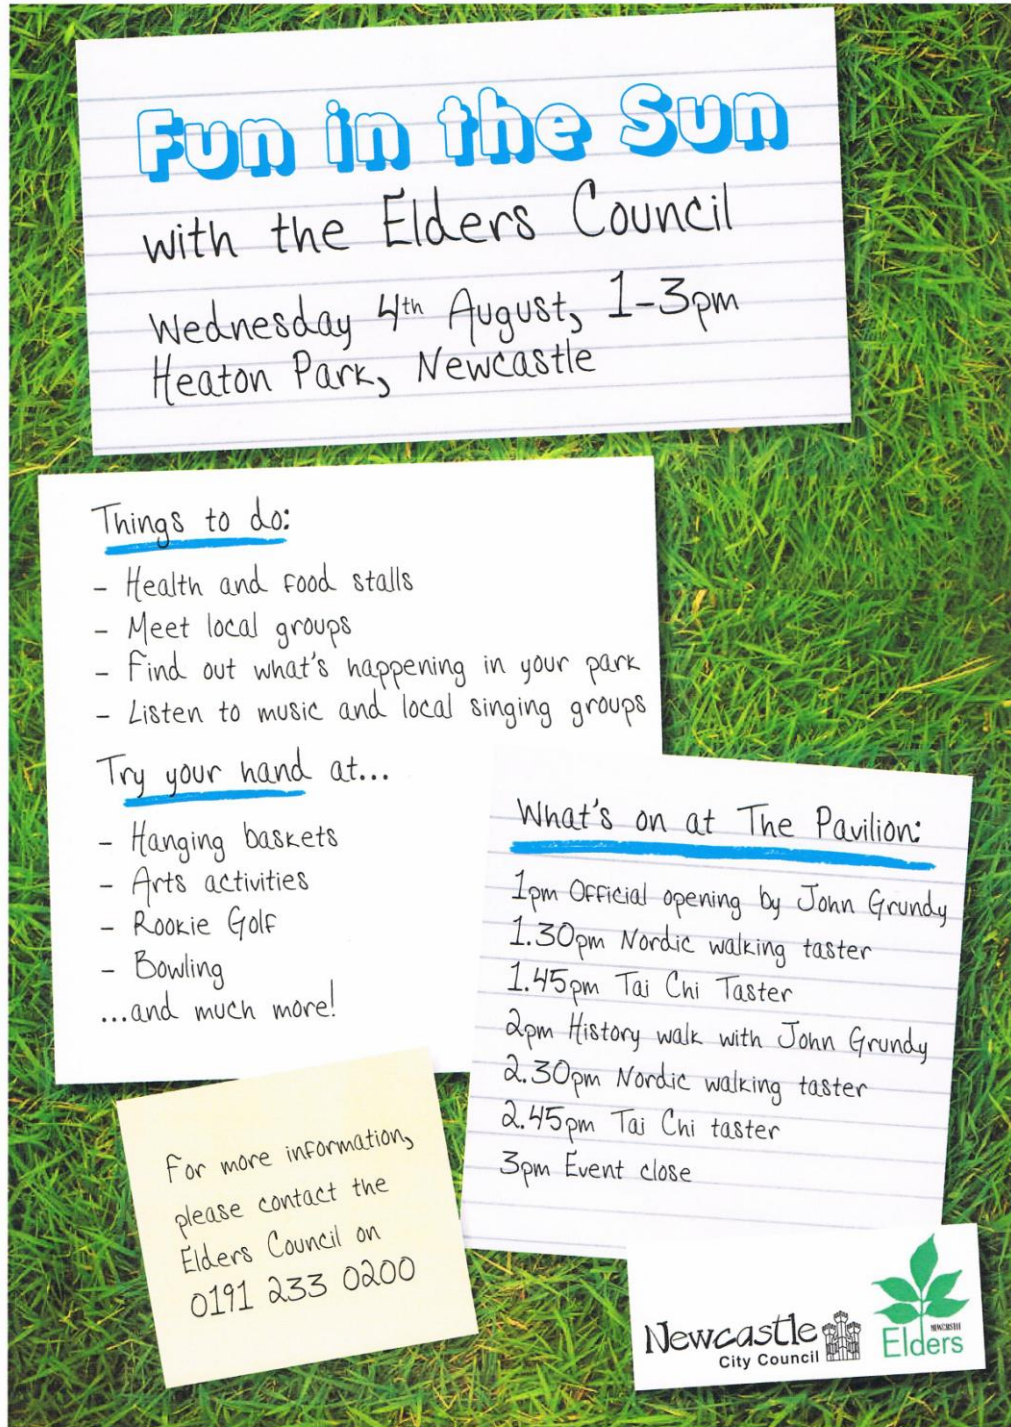 Fun in the Sun
with the Elders Council
Wednesday 4th August, 1-3pm
Heaton Park, Newcastle
Things to do:
- Health and food stalls
- Meet local groups
- Find out what's happening in your park
- Listen to music and local singing groups
Try your hand at...
- Hanging baskets
- Arts activities
- Rookie Golf
- Bowling
...and much more!
What's on at The Pavilion:
1pm Official opening by John Grundy
1.30pm Nordic walking taster
1.45pm Tai Chi Taster
2pm History walk with John Grundy
2.30pm Nordic walking taster
2.45pm Tai Chi taster
3pm Event close
For more information,
please contact the
Elders Council on
0191 233 0200
Newcastle
City Council
NEWCASTLE
Elders